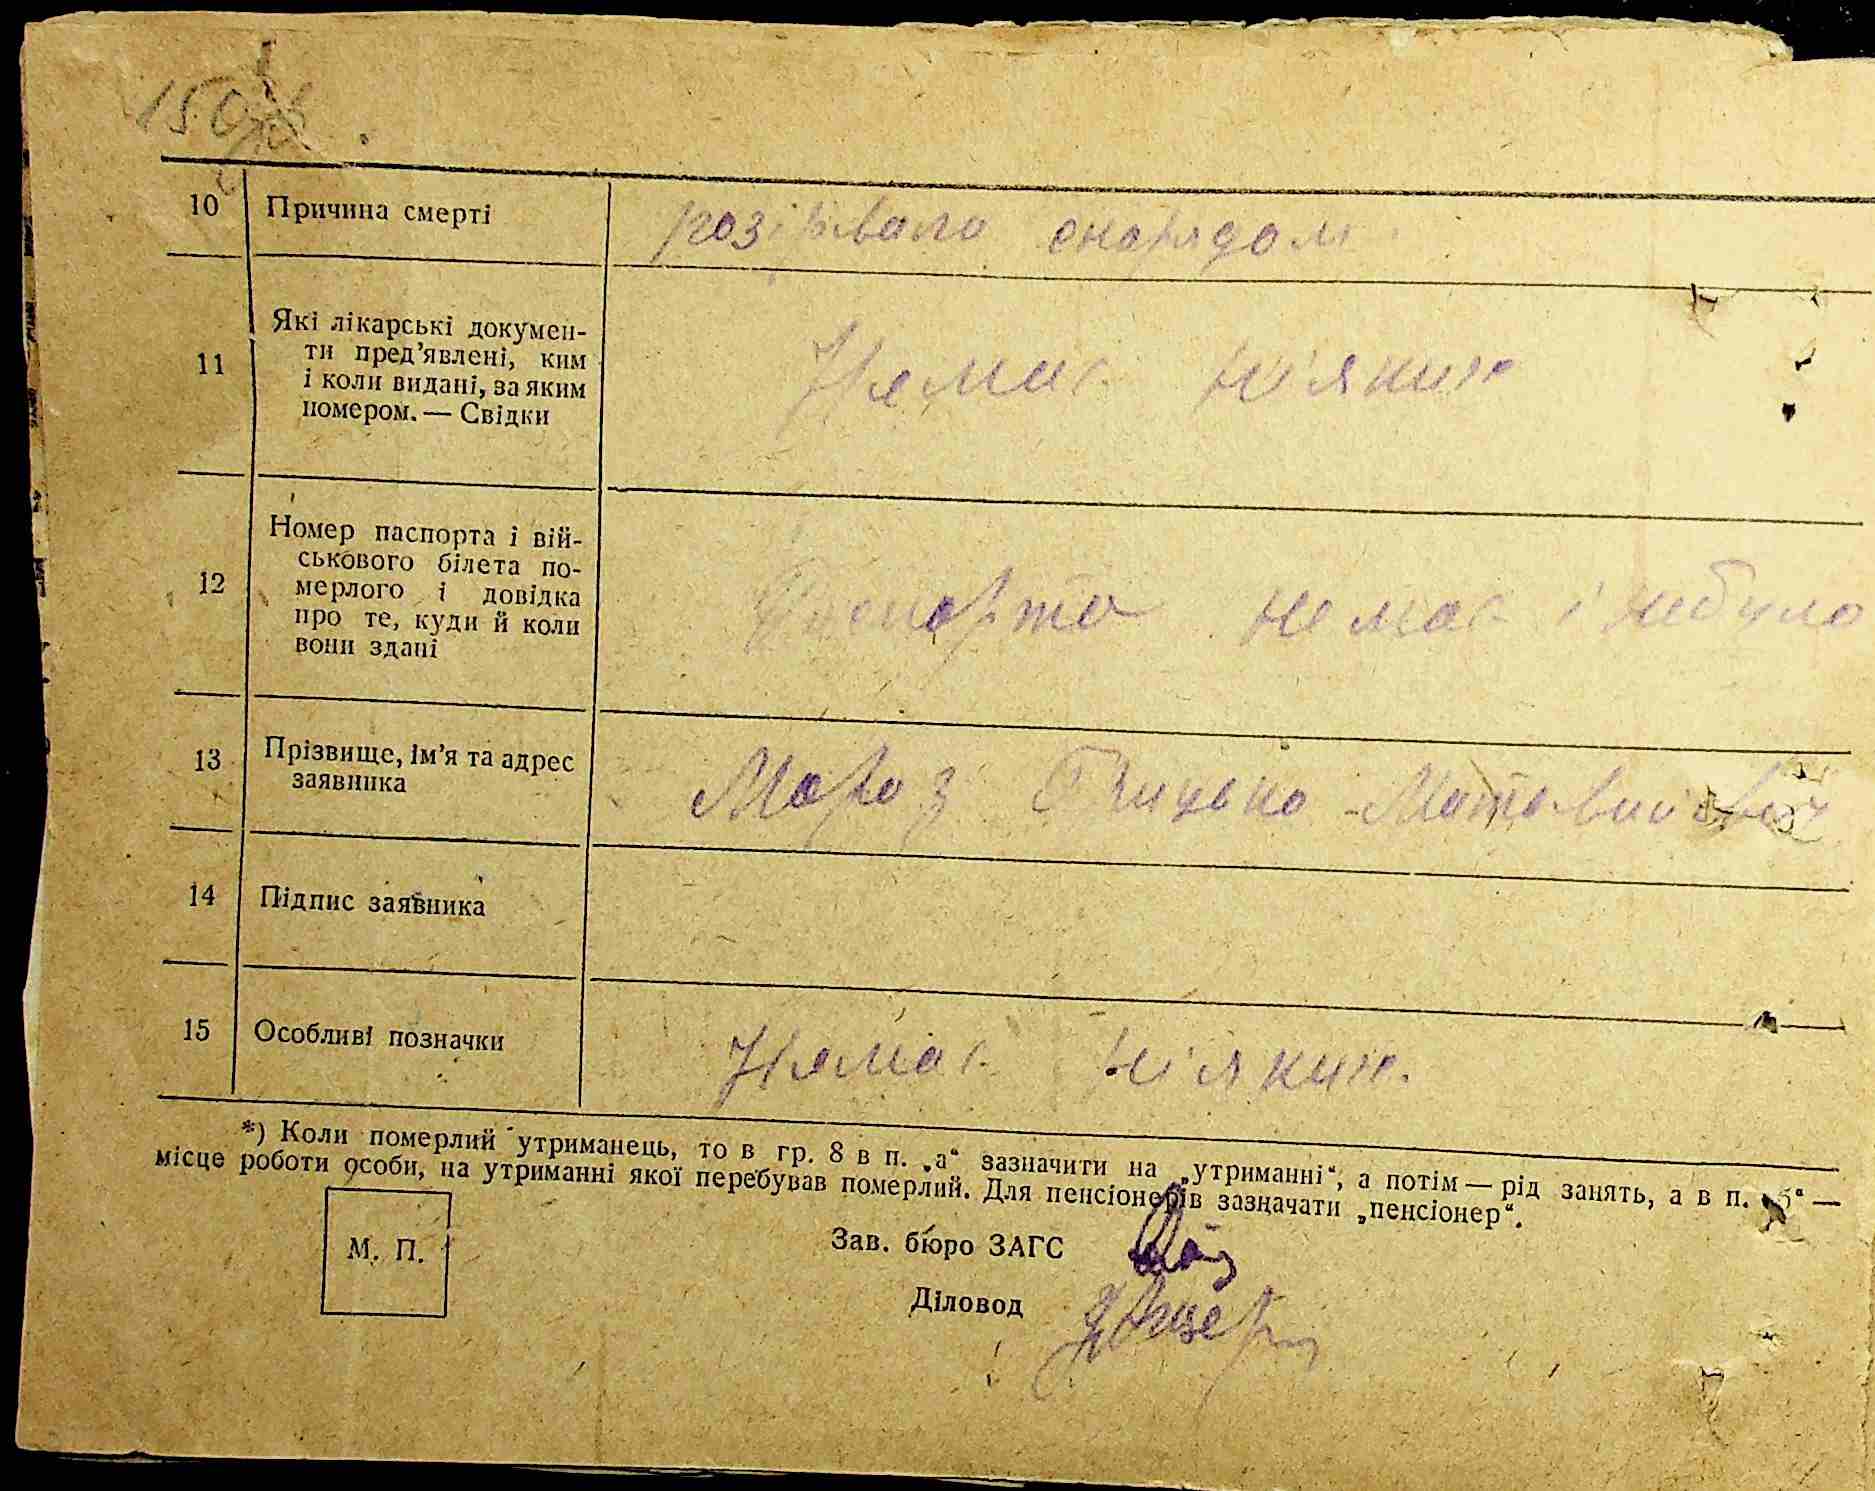 150
10 Причина смерті розірвало снарядом
11 Які лікарські докумен-
ти пред'явлені, ким
і коли видані, за яким
номером. — Свідки
Немає ніяких
12 Номер паспорта і вій-
ськового білета по-
мерлого і довідка
про те, куди й коли
вони здані
Паспорта немає і небуло
13 Прізвище, ім'я та адрес
заявника
Мороз Грицько Матвійович
14 Підпис заявника
15 Особливі позначки Немає ніяких.
*) Коли померлий утриманець, то в гр. 8 в п. „а“ зазначити на „утриманні“, а потім — рід занять, а в п. „б“ —
місце роботи особи, на утриманні якої перебував померлий. Для пенсіонерів зазначати „пенсіонер“.
М. П.
Зав. бюро ЗАГС
Діловод